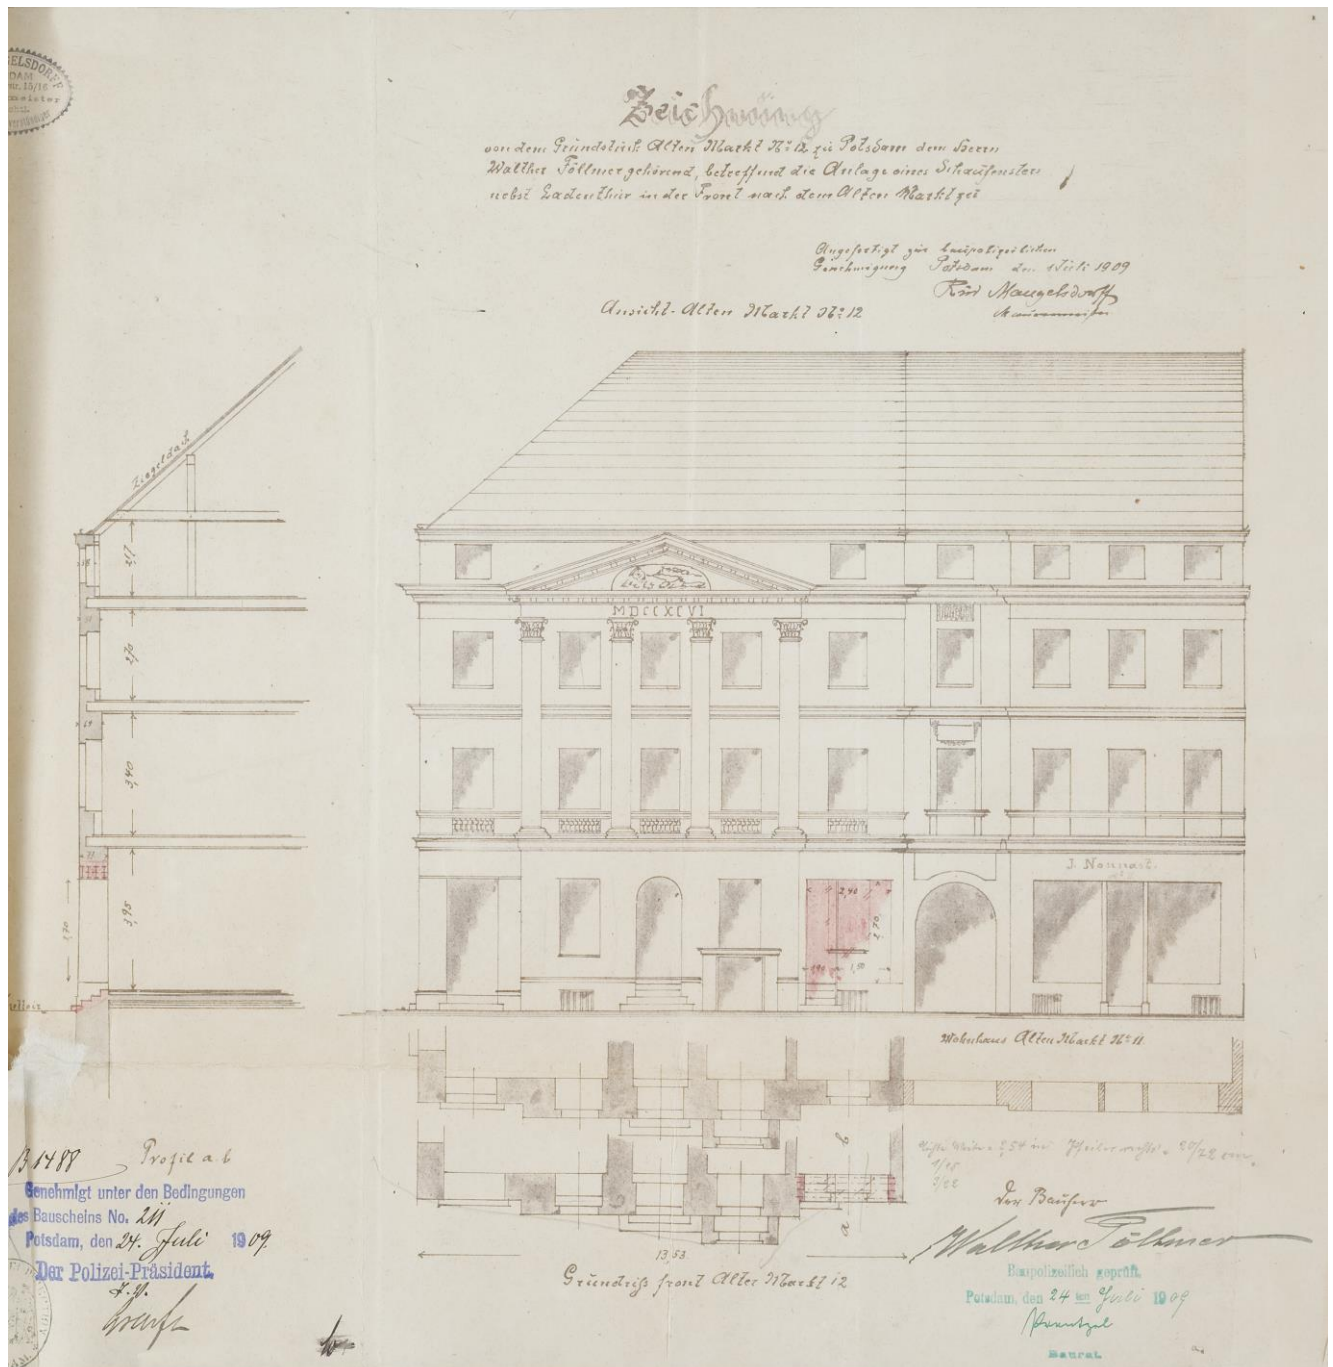 GELSDORFF
DAM
str. 15/16
Zeichnung
von dem Grundstück Alten Markt No 12 zu Potsdam dem Herrn
Walther Töllmer gehörend, betreffend die Anlage eines Schaufensters
nebst Ladenthür in der Front nach dem Alten Markt zu
Angefertigt zur baupolizeilichen
Genehmigung Potsdam den Juli 1909
Mangelsdorff
Maurermeister
Ansicht-Alten Markt No 12
Ziegeldach
MDCCXCVI
3,40
3,95
2,70
J. Nounast.
2,40
2,70
0,90
1,50
Wohnhaus Alten Markt No 11.
B 1488
Profil a b
Genehmigt unter den Bedingungen
des Bauscheins No. 211
Potsdam, den 24. Juli 1909
Der Polizei-Präsident.
J. V.
b
a
13,53
Grundriß front Alter Markt 12
Der Bauherr
Walther Töllmer
Baupolizeilich geprüft.
Potsdam, den 24 ten Juli 1909
Baurat.